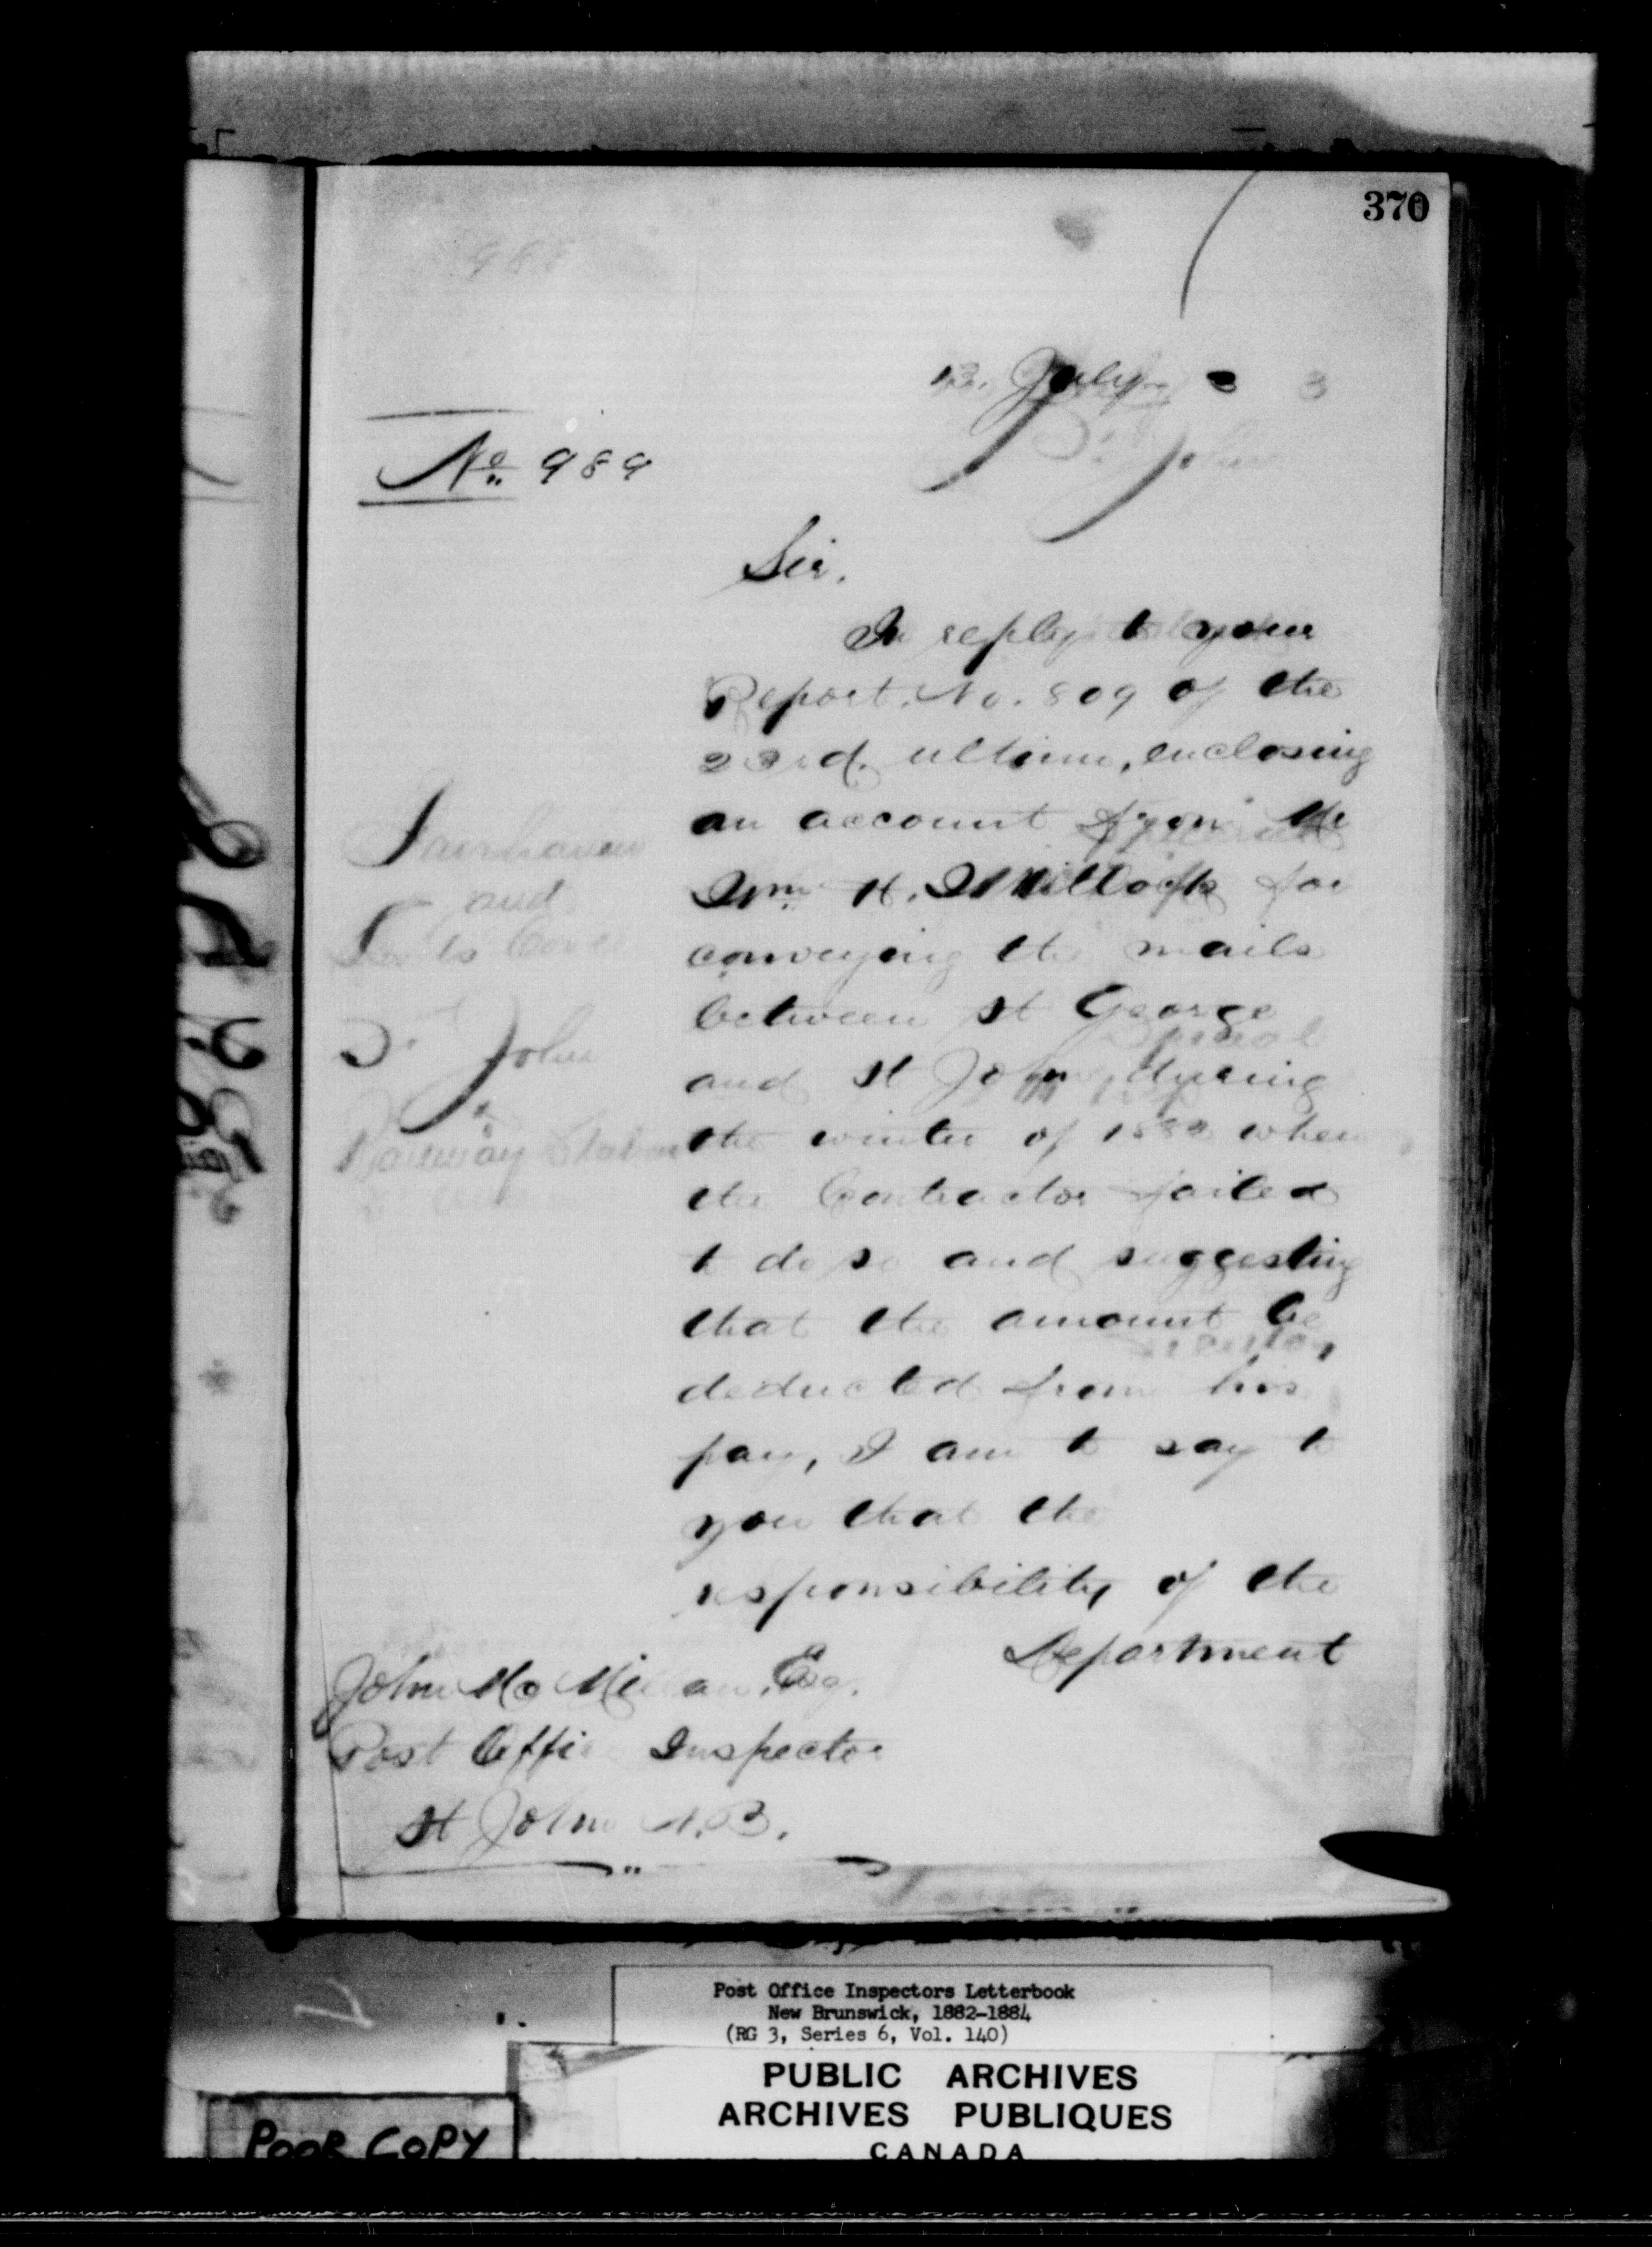 370
13. July 3
No. 989
Sir,
In reply to your
Report. No. 809 of the
23rd. ultimo, enclosing
an account from Mr
Wm. H. for
conveying the mails
between St George
and St John, during
the winter of 1882 when
the Contractor failed
to do so and suggesting
that the amount be
deducted from his
pay, I am to say to
you that the
responsibility of the
Department
Fairhaven
and
Cove
St. John
&
Railway Station
John McMillan, Esq.
Post Office Inspector
St John N.B.
Post Office Inspectors Letterbook
New Brunswick, 1882-1884
(RG 3, Series 6, Vol. 140)
PUBLIC ARCHIVES
ARCHIVES PUBLIQUES
CANADA
POOR COPY